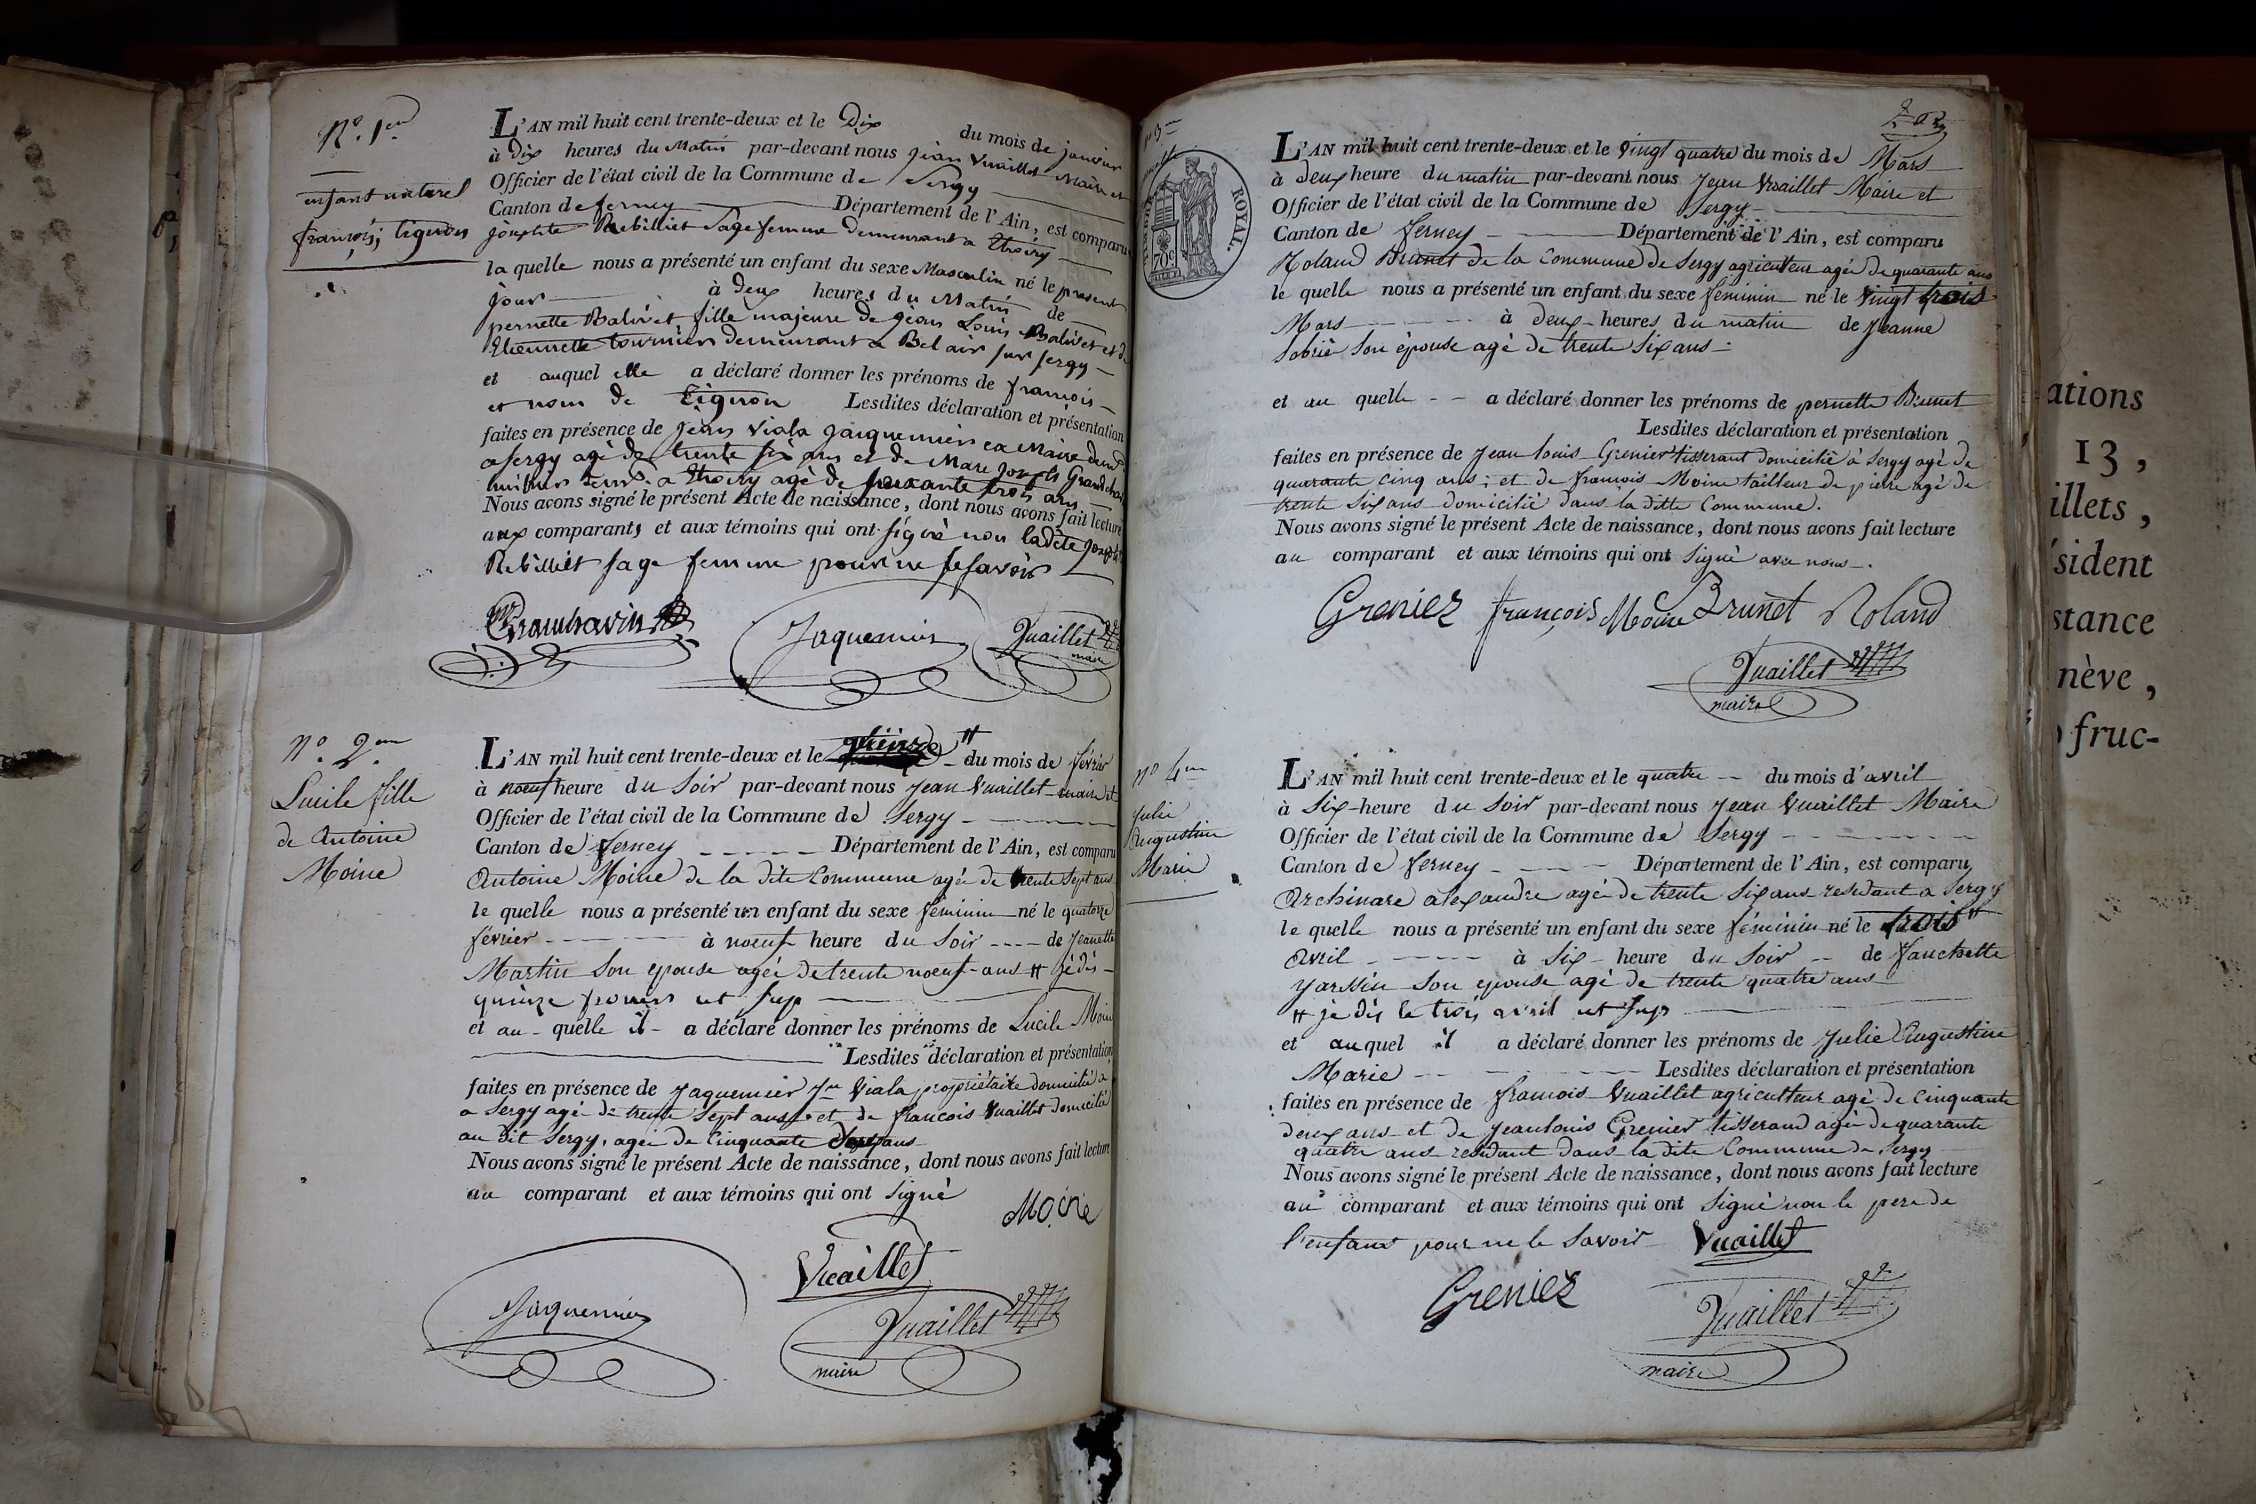 N.º 1.er
enfant naturel
françois; tignon
L'AN mil huit cent trente-deux et le Dix du mois de janvier
à Dix heures du Matin par-devant nous jean Vuaillet Maire et
Officier de l'état civil de la Commune de Sergy
Canton de ferney Département de l'Ain, est comparu
josephte Rebilliet Sage femme demeurant a thoiry
la quelle nous a présenté un enfant du sexe Masculin né le present
jour à deux heures du Matin de
pernette Balivet fille majeure de jean Louis Balivet et de
Etiennette tournier demeurant a Bel air sur sergy
et auquel elle a déclaré donner les prénoms de françois
et nom de Tignon Lesdites déclaration et présentation
faites en présence de jean Viala jaquemier ex Maire
a sergy agé de trente six ans et de Marc joseph
a thoiry agé de soixante trois ans
Nous avons signé le présent Acte de naissance, dont nous avons fait lecture
aux comparants et aux témoins qui ont signé non ladite
Rebilliet sage femme pour ne le savoir
Jaquemier
Vuaillet
maire
Nº 2.em
Lucile fille
de Antoine
Moine
L'AN mil huit cent trente-deux et le quinze # du mois de février
à noeuf heure du Soir par-devant nous jean Vuaillet maire et
Officier de l'état civil de la Commune de Sergy
Canton de ferney Département de l'Ain, est comparu
Antoine Moine de la dite Commune agée de trente Sept ans
le quelle nous a présenté un enfant du sexe féminin né le quatorze
février à noeuf heure du Soir de jeanette
Martin Son epouse agée de trente noeuf ans # je dis
quinze
et au quelle il a déclaré donner les prénoms de Lucile Moine
Lesdites déclaration et présentation
faites en présence de jaquemier Jn Viala propriétaire domicilié a
a Sergy agée de trente Sept ans et de françois Vuaillet domicilié
au dit Sergy, agée de Cinquante ans
Nous avons signé le présent Acte de naissance, dont nous avons fait lecture
au comparant et aux témoins qui ont Signé
Moine
Vuaillet
Jaquemier
Vuaillet
maire
Nº 3
TIMBRE ROYAL.
70c
L'AN mil huit cent trente-deux et le vingt quatre du mois de Mars
à deux heure du matin par-devant nous jean Vuaillet Maire et
Officier de l'état civil de la Commune de Sergy
Canton de ferney Département de l'Ain, est comparu
Roland Brunet de la Commune de Sergy agriculteur agé de quarante ans
le quelle nous a présenté un enfant du sexe feminin né le vingt trois
Mars à deux heures du matin de jeanne
Sobrié Son épouse agé de trente Six ans
et au quelle a déclaré donner les prénoms de pernette Brunet
Lesdites déclaration et présentation
faites en présence de jean louis Grenier tisserant domicilié à Sergy agé de
quarante cinq ans; et de francois Moine tailleur de pierre agé de
trente Six ans domicilié dans la ditte Commune.
Nous avons signé le présent Acte de naissance, dont nous avons fait lecture
au comparant et aux témoins qui ont Signé avec nous.
Grenier françois Moine Brunet Roland
Vuaillet
maire
Nº 4.em
Julie
Augustine
Marie
L'AN mil huit cent trente-deux et le quatre du mois d'avril
à Six heure du Soir par-devant nous jean Vuaillet Maire
Officier de l'état civil de la Commune de Sergy
Canton de ferney Département de l'Ain, est comparu
Archinare alexandre agé de trente Six ans residant a Sergy
le quelle nous a présenté un enfant du sexe féminin né le trois #
Avril à Six heure du Soir de fanchette
Son epouse agé de trente quatre ans
# je dis le trois avril ut sup
et auquel il a déclaré donner les prénoms de Julie Augustine
Marie Lesdites déclaration et présentation
faites en présence de francois Vuaillet agriculteur agé de cinquante
deux ans et de jean louis Grenier tisserand agé de quarante
quatre ans residant dans la dite Commune de Sergy
Nous avons signé le présent Acte de naissance, dont nous avons fait lecture
au comparant et aux témoins qui ont Signé non le pere de
l'enfant pour ne le Savoir Vuaillet
Grenier
Vuaillet
maire
ations
13,
illets,
sident
stance
nève,
fruc-